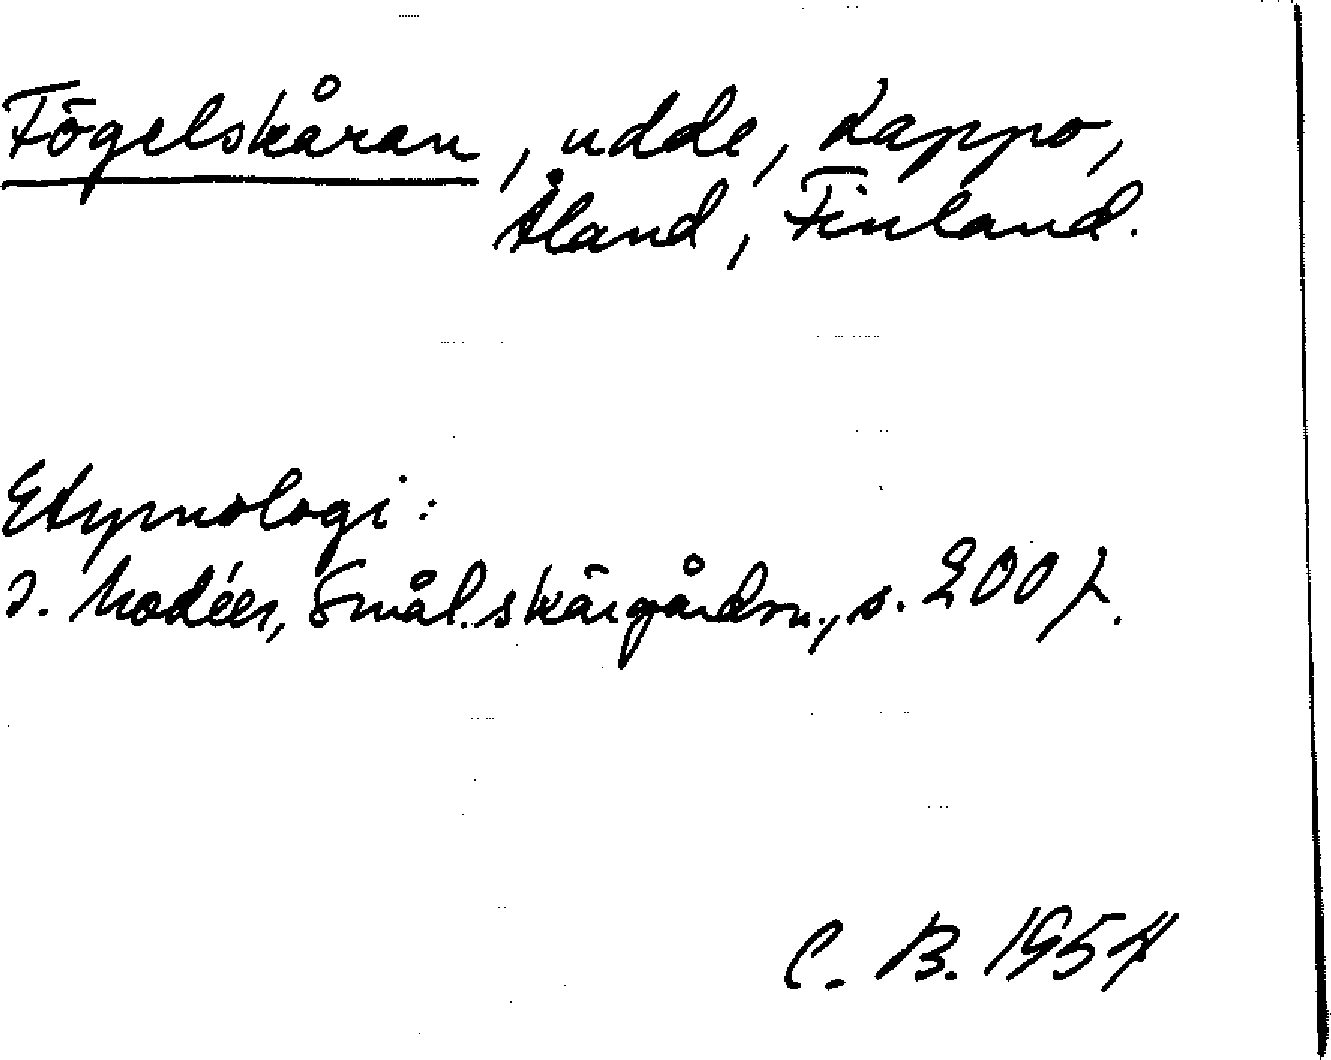 Fögelskåran, udde, Kappo,
Åland, Finland.
Etymologi:
I. Modéer, Smål. skärgårdsn., s. 200 f.
C. B. 1954